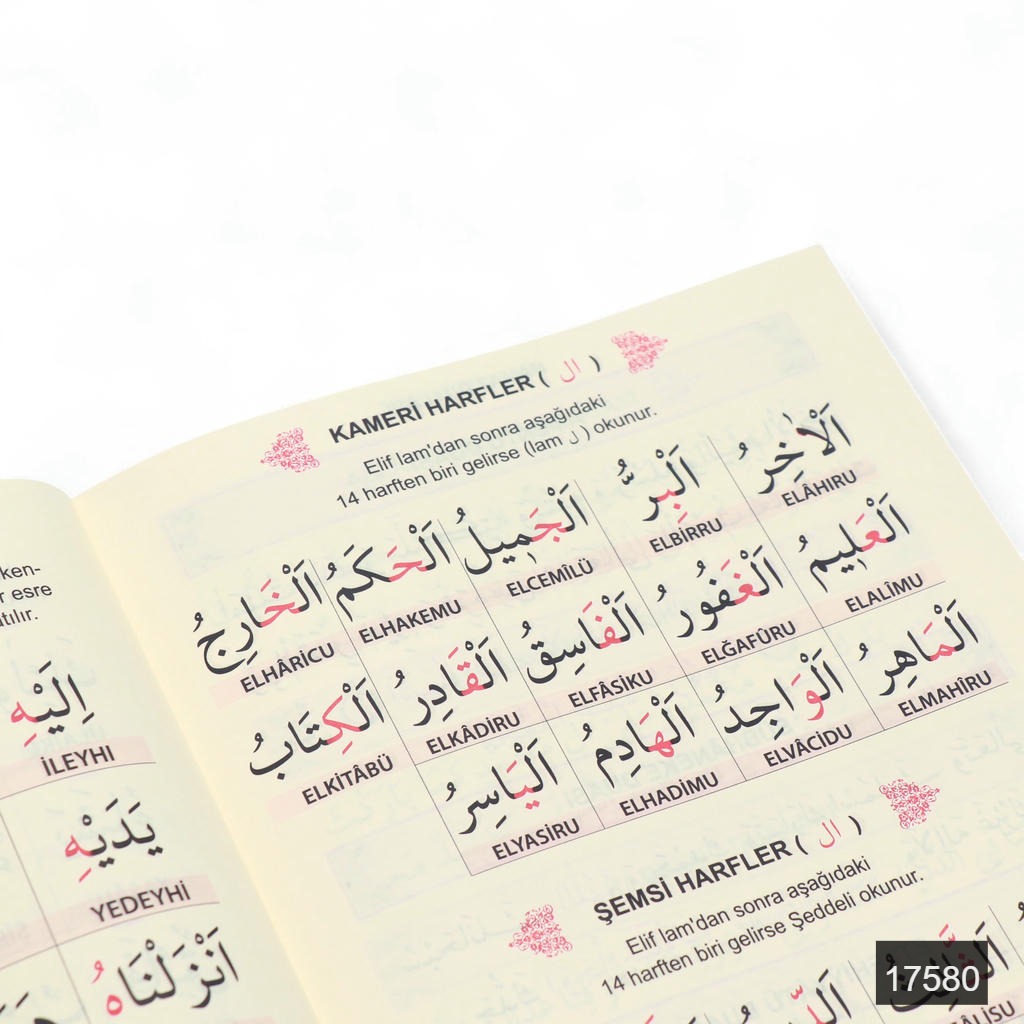 KAMERİ HARFLER ( ال )
Elif lam'dan sonra aşağıdaki
14 harften biri gelirse (lam ل ) okunur.
اَلْاٰخِرُ اَلْبِرُّ اَلْجَمٖيلُ اَلْحَكَمُ اَلْخَارِجُ
ELÂHIRU ELBİRRU ELCEMİLÜ ELHAKEMU ELHÂRİCU
اَلْعَلٖيمُ اَلْغَفُورُ اَلْفَاسِقُ اَلْقَادِرُ اَلْكِتَابُ
ELALÎMU ELĞAFÛRU ELFÂSİKU ELKÂDİRU ELKİTÂBÜ
اَلْمَاهِرُ اَلْوَاجِدُ اَلْهَادِمُ اَلْيَاسِرُ
ELMAHÎRU ELVÂCİDU ELHADİMU ELYASİRU
ŞEMSİ HARFLER ( ال )
Elif lam'dan sonra aşağıdaki
14 harften biri gelirse Şeddeli okunur.
esre
اِلَيْهِ
İLEYHI
يَدَيْهِ
YEDEYHİ
اَنْزَلْنَاهُ
17580